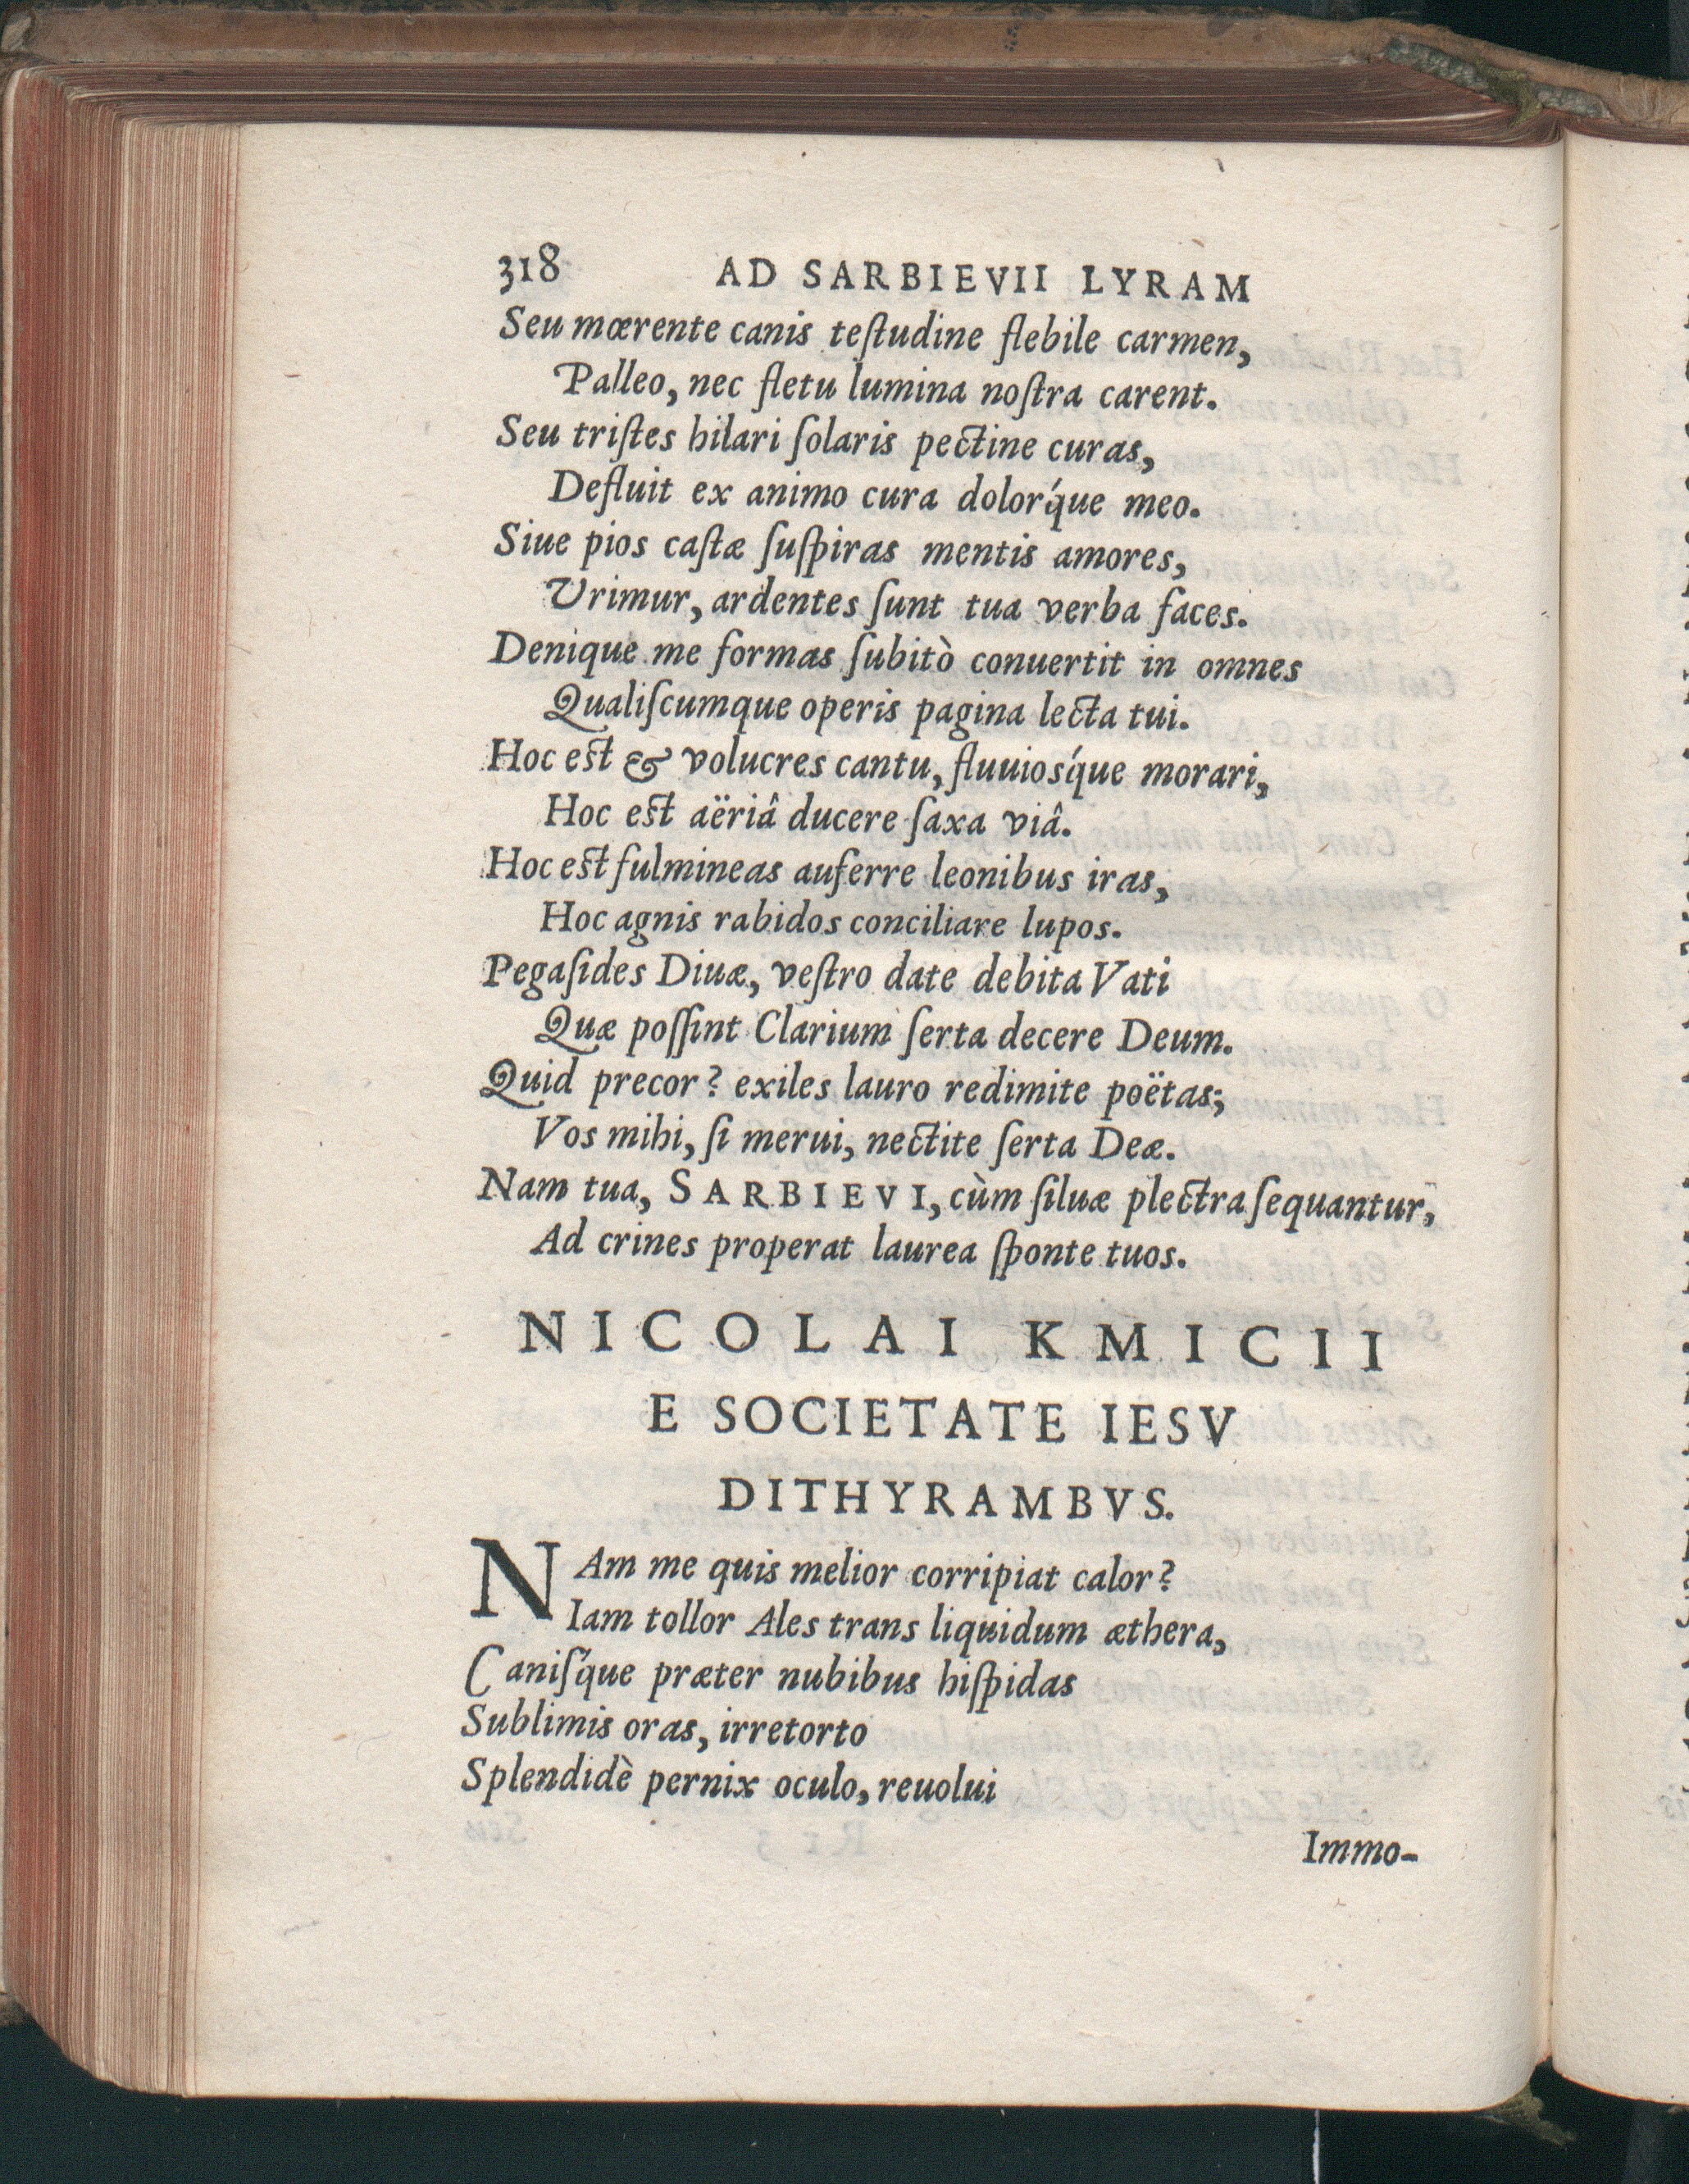 318 AD SARBIEVII LYRAM
Seu mœrente canis teſtudine flebile carmen,
Palleo, nec fletu lumina noſtra carent.
Seu triſtes hilari ſolaris pectine curas,
Defluit ex animo cura dolorq́ue meo.
Siue pios caſtæ ſuſpiras mentis amores,
Vrimur, ardentes ſunt tua verba faces.
Denique me formas ſubitò conuertit in omnes
Qualiſcumque operis pagina lecta tui.
Hoc eſt & volucres cantu, fluuiosq́ue morari,
Hoc eſt aëriâ ducere ſaxa viâ.
Hoc eſt fulmineas auferre leonibus iras,
Hoc agnis rabidos conciliare lupos.
Pegaſides Diuæ, veſtro date debita Vati
Quæ poſſint Clarium ſerta decere Deum.
Quid precor? exiles lauro redimite poëtas;
Vos mihi, ſi merui, nectite ſerta Deæ.
Nam tua, SARBIEVI, cùm ſiluæ plectra ſequantur,
Ad crines properat laurea ſponte tuos.
NICOLAI KMICII
E SOCIETATE IESV
DITHYRAMBVS.
NAm me quis melior corripiat calor?
Iam tollor Ales trans liquidum æthera,
Caniſq́ue præter nubibus hiſpidas
Sublimis oras, irretorto
Splendidè pernix oculo, reuolui
Immo-